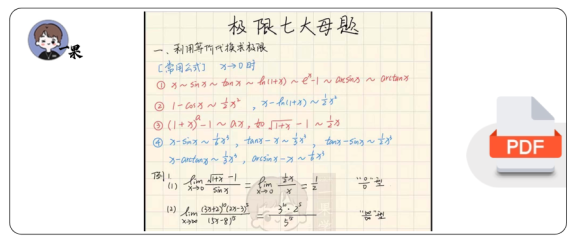 极限七大母题
一果
一、利用等价代换求极限
[常用公式] x→0时
① x~sinx~tanx~ln(1+x)~eˣ-1~arcsinx~arctanx
② 1-cosx~½x², x-ln(1+x)~½x²
③ (1+x)ᵅ-1~αx, 如 √(1+x) -1~½x
④ x-sinx~1/6x³, tanx-x~1/3x³, tanx-sinx~½x³
x-arctanx~1/3x³, arcsinx-x~1/6x³
例1.
(1) lim x→0 (√(1+x) -1)/sinx = lim x→0 ½x/x = 1/2 "0/0"型
(2) lim x→∞
PDF